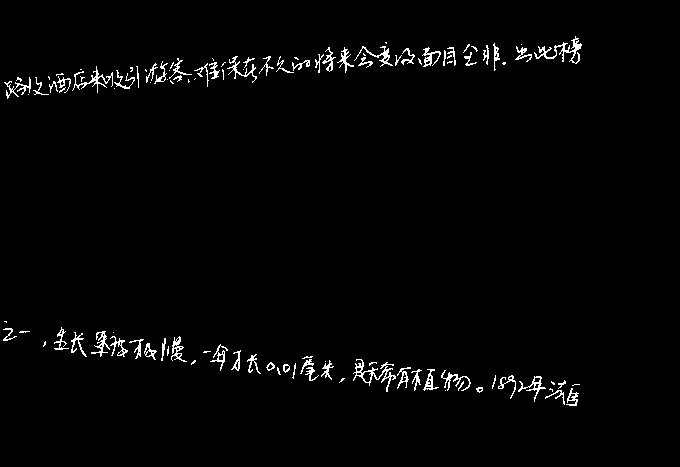 路及酒店来吸引游客,难保在不久的将来会变及面目全非.出此榜
之一,生长速度极慢,一年才长0.01厘米,是稀有植物。1892年法医